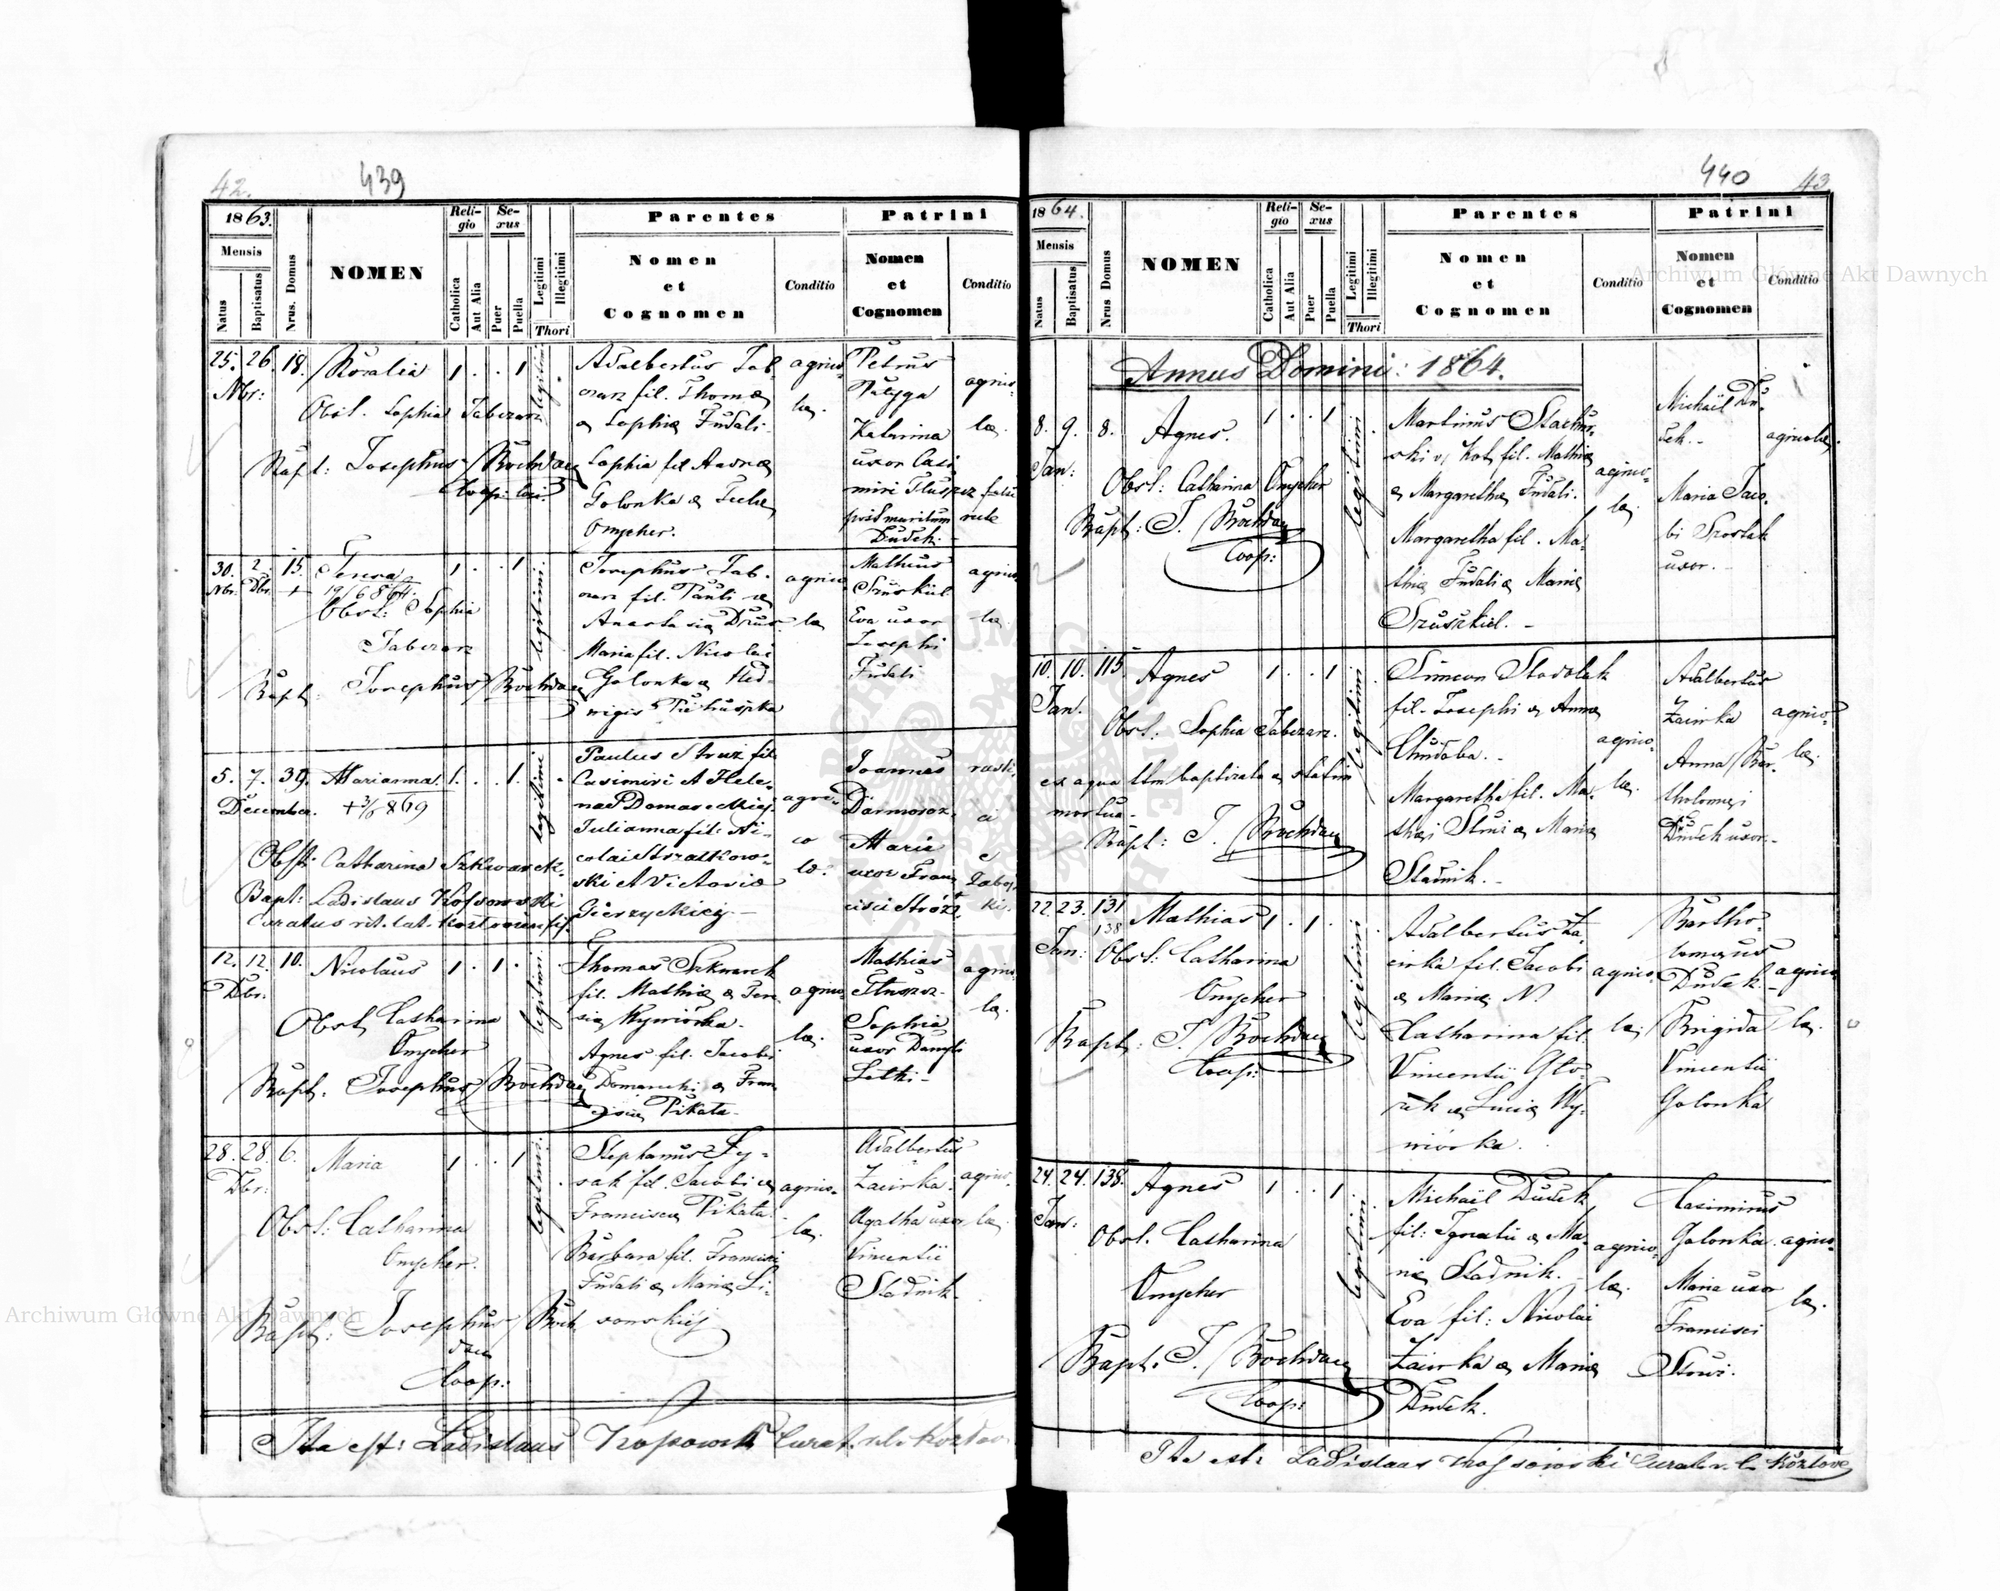 42.
439
1863.
Mensis
Natus
Baptisatus
Nrus. Domus
NOMEN
Reli-
gio
Catholica
Aut Alia
Se-
xus
Puer
Puella
Legitimi
Illegitimi
Thori
Parentes
Nomen
et
Cognomen
Conditio
Patrini
Nomen
et
Cognomen
Conditio
25. 26. 18. Rozalia 1 . . 1
Nbr:
Obst. Sophia Taberarz
Bapt: Josephus Brochdacz
Coop:
legitimi
Adalbertus Tab-
erarz fil. Thomæ
& Sophiæ Fudali
Sophia fil. Andreæ
Golonka & Teclæ
Omycher.
agrico-
læ.
Petrus
Ratyga
Katarina
uxor Casi
miri Tluszcz
post maritum
Dudek
agrico-
læ
30. 2. 15. Teresa 1 . . 1
Nbr. Dbr. + 19/6 864.
Obst: Sophia
Taberarz
Bapt: Josephus Brochdacz
legitimi.
Josephus Tab-
erarz fil. Pauli &
Anastasiæ Drus.
Maria fil. Nicolai
Golonka & Hed-
vigis Pietruszka
agrico
læ
Matheus
Szuszkiel
Eva uxor
Josephi
Fudali
agrico
læ
5. 7. 39. Marianna. 1. . . 1.
December.
Obst: Catharina Szkwarek.
Bapt: Ladislaus Kossowski
Curatus rit. lat.
legitimi
Paulus Struz fil.
Casimiri & Hele-
nae Domareckiej
Julianna fil: Ni-
colai Strzalkow-
ski & Victoriæ
Gierzyckiej
agri-
co
læ.
Joannes
Darmoroz.
Maria
uxor Fran
cisci Stróż.
12. 12. 10. Nicolaus 1 . 1 .
Dbr.
Obst. Catharina
Omycher
Bapt. Josephus Brochdacz
legitimi
Thomas Szkwarek
fil. Mathiæ & Tere
siæ Wywiórka.
Agnes fil. Jacobi
Domarecki & Fran
ciscæ Pikata.
agrico-
læ.
Mathias
Tluszcz
Sophia
uxor Danyli
Letki
agrico-
læ.
28. 28. 6. Maria 1 . . 1
Dbr.
Obst: Catharina
Omycher.
Bapt: Josephus Broch
dacz
Coop:
legitimi.
Stephanus Ły-
sak fil. Jacobi &
Franciscæ Pikata
Barbara fil. Francisci
Fudali & Mariæ Li-
sowskiej
agrico-
læ.
Adalbertus
Zawirka.
Agatha uxor
Vincentii
Stadnik.
agrico-
læ
Ita est: Ladislaus Kossowski Curat. r. l.
440
43.
1864.
Mensis
Natus
Baptisatus
Nrus Domus
NOMEN
Reli-
gio
Catholica
Aut Alia
Se-
xus
Puer
Puella
Legitimi
Illegitimi
Thori
Parentes
Nomen
et
Cognomen
Conditio
Patrini
Nomen
et
Cognomen
Conditio
Annus Domini: 1864.
8. 9. 8. Agnes. 1 . . 1
Jan:
Obst: Catharina Omycher
Bapt: J. Brochdacz
Coop:
legitimi.
Martinus Stachur-
ski v. Kot fil. Mathiæ
& Margarethæ Fudali.
Margaretha fil. Ma-
thiæ Fudali & Mariæ
Szuszkiel.
agrico-
læ
Michaël Du-
dek.
Maria Jaco-
bi Szostak
uxor.
agricolæ.
10. 10. 115. Agnes 1 . . 1
Jan.
Obst. Sophia Taberarz.
ex aqua ttm baptizata & statim
mortua.
Bapt: J. Brochdacz
legitimi.
Simeon Stodolak
fil. Josephi & Annæ
Chudoba.
Margaretha fil. Ma-
thæi Struz & Mariæ
Stadnik.
agrico-
læ.
Adalbertus
Zawirka
Anna Bar-
tholomæi
Dudek uxor.
agrico-
læ.
22. 23. 131 Mathias 1 . 1 .
138
Jan: Obst: Catharina
Omycher
Bapt: J. Brochdacz
Coop:
legitimi.
Adalbertus Za-
wirka fil. Jacobi
& Mariæ N.
Catharina fil.
Vincentii Glo-
wak & Luciæ Wy-
wiórka.
agrico-
læ
Bartho-
lomæus
Dudek.
Brigida
Vincentii
Golonka
agrico
læ.
24. 24. 138. Agnes 1 . . 1 .
Jan:
Obst. Catharina
Omycher
Bapt. J. Brochdacz
Coop:
legitimi
Michaël Dudek
fil: Ignatii & Ma-
riæ Stadnik.
Eva fil: Nicolai
Zawirka & Mariæ
Dudek.
agrico-
læ.
Casimirus
Golonka.
Maria uxor
Francisci
Struz.
agrico-
læ.
Ita est: Ladislaus Kossowski Curat. r. l.
Archiwum Główne Akt Dawnych
Archiwum Główne Akt Dawnych
ARCHIWUM GŁÓWNE AKT DAWNYCH